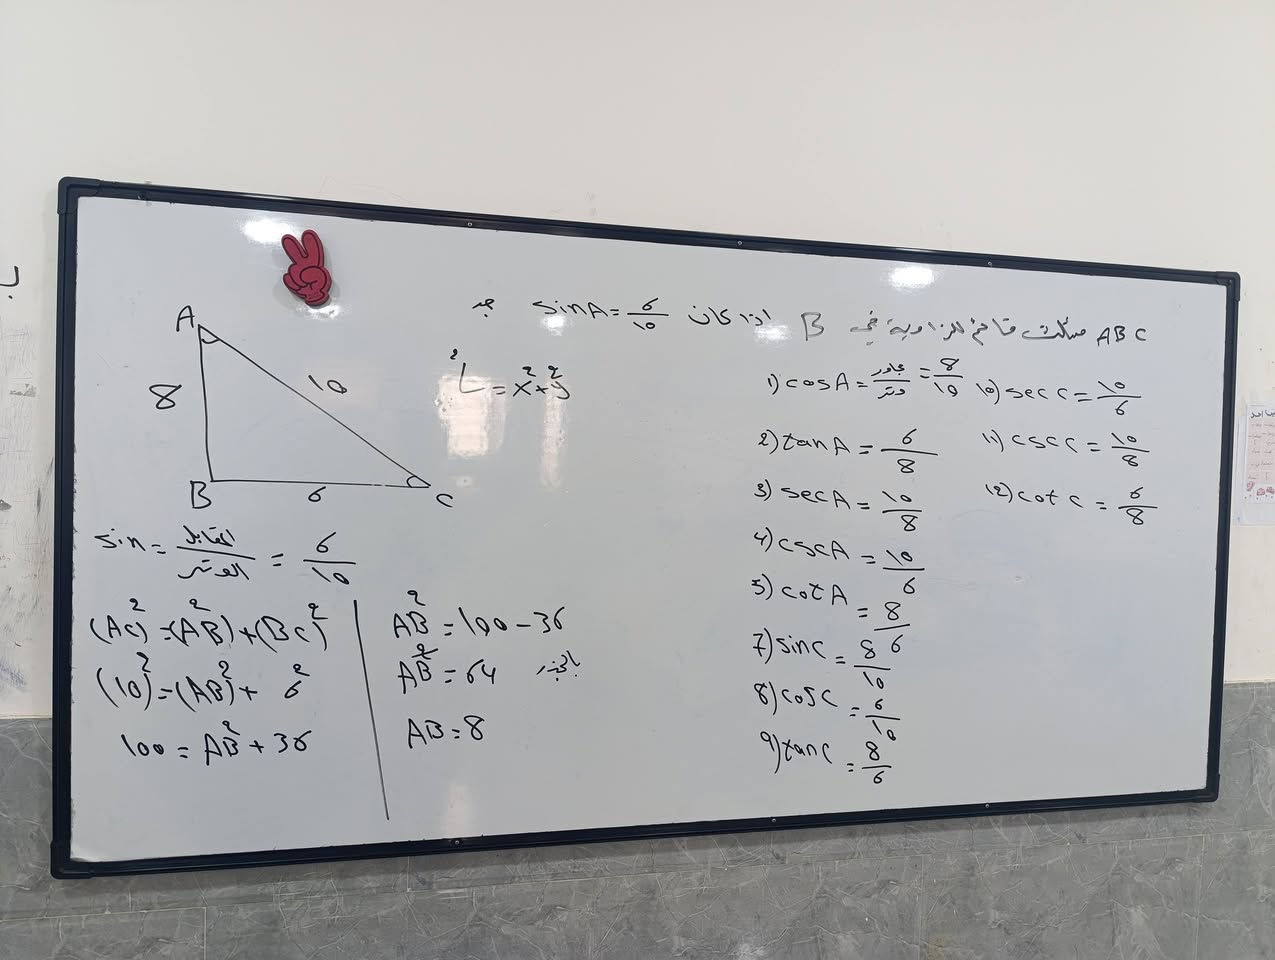 ABC مثلث قائم الزاوية في B اذا كان sinA = 6/10 جد
1) cosA = مجاور/وتر = 8/10
2) tanA = 6/8
3) secA = 10/8
4) cscA = 10/6
5) cotA = 8/6
7) sinc = 8/10
8) cosc = 6/10
9) tanc = 8/6
10) secc = 10/6
11) cscc = 10/8
12) cotc = 6/8
L² = x² + y²
A
8
10
B
6
C
sin = المقابل/الوتر = 6/10
(AC)² = (AB)² + (BC)²
(10)² = (AB)² + 6²
100 = AB² + 36
AB² = 100 - 36
AB² = 64 بالجذر
AB = 8